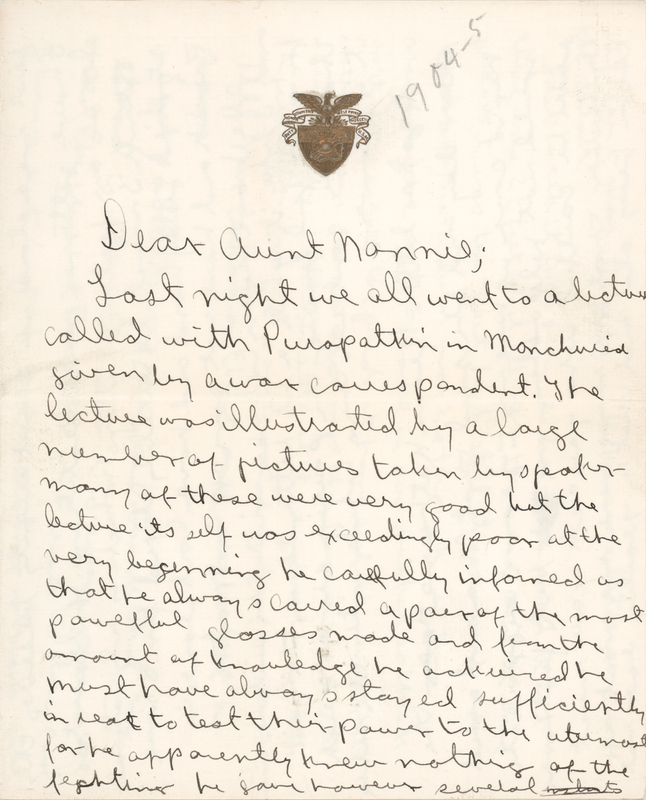 1904-5
Dear Aunt Nannie;
Last night we all went to a lecture
called with Puropatkin in Manchuria
given by a war correspondent. The
lecture was illustrated by a large
number of pictures taken by speaker
many of these were very good but the
lecture its self was exceedingly poor at the
very beginning he carefully informed us
that he always caired a pair of the most
powefful glosses made and from the
amount of knowledge he ackuired he
must have always stayed sufficiently
in rear to test their power to the utermost
for he apparently knew nothing of the
fighting he gave however several